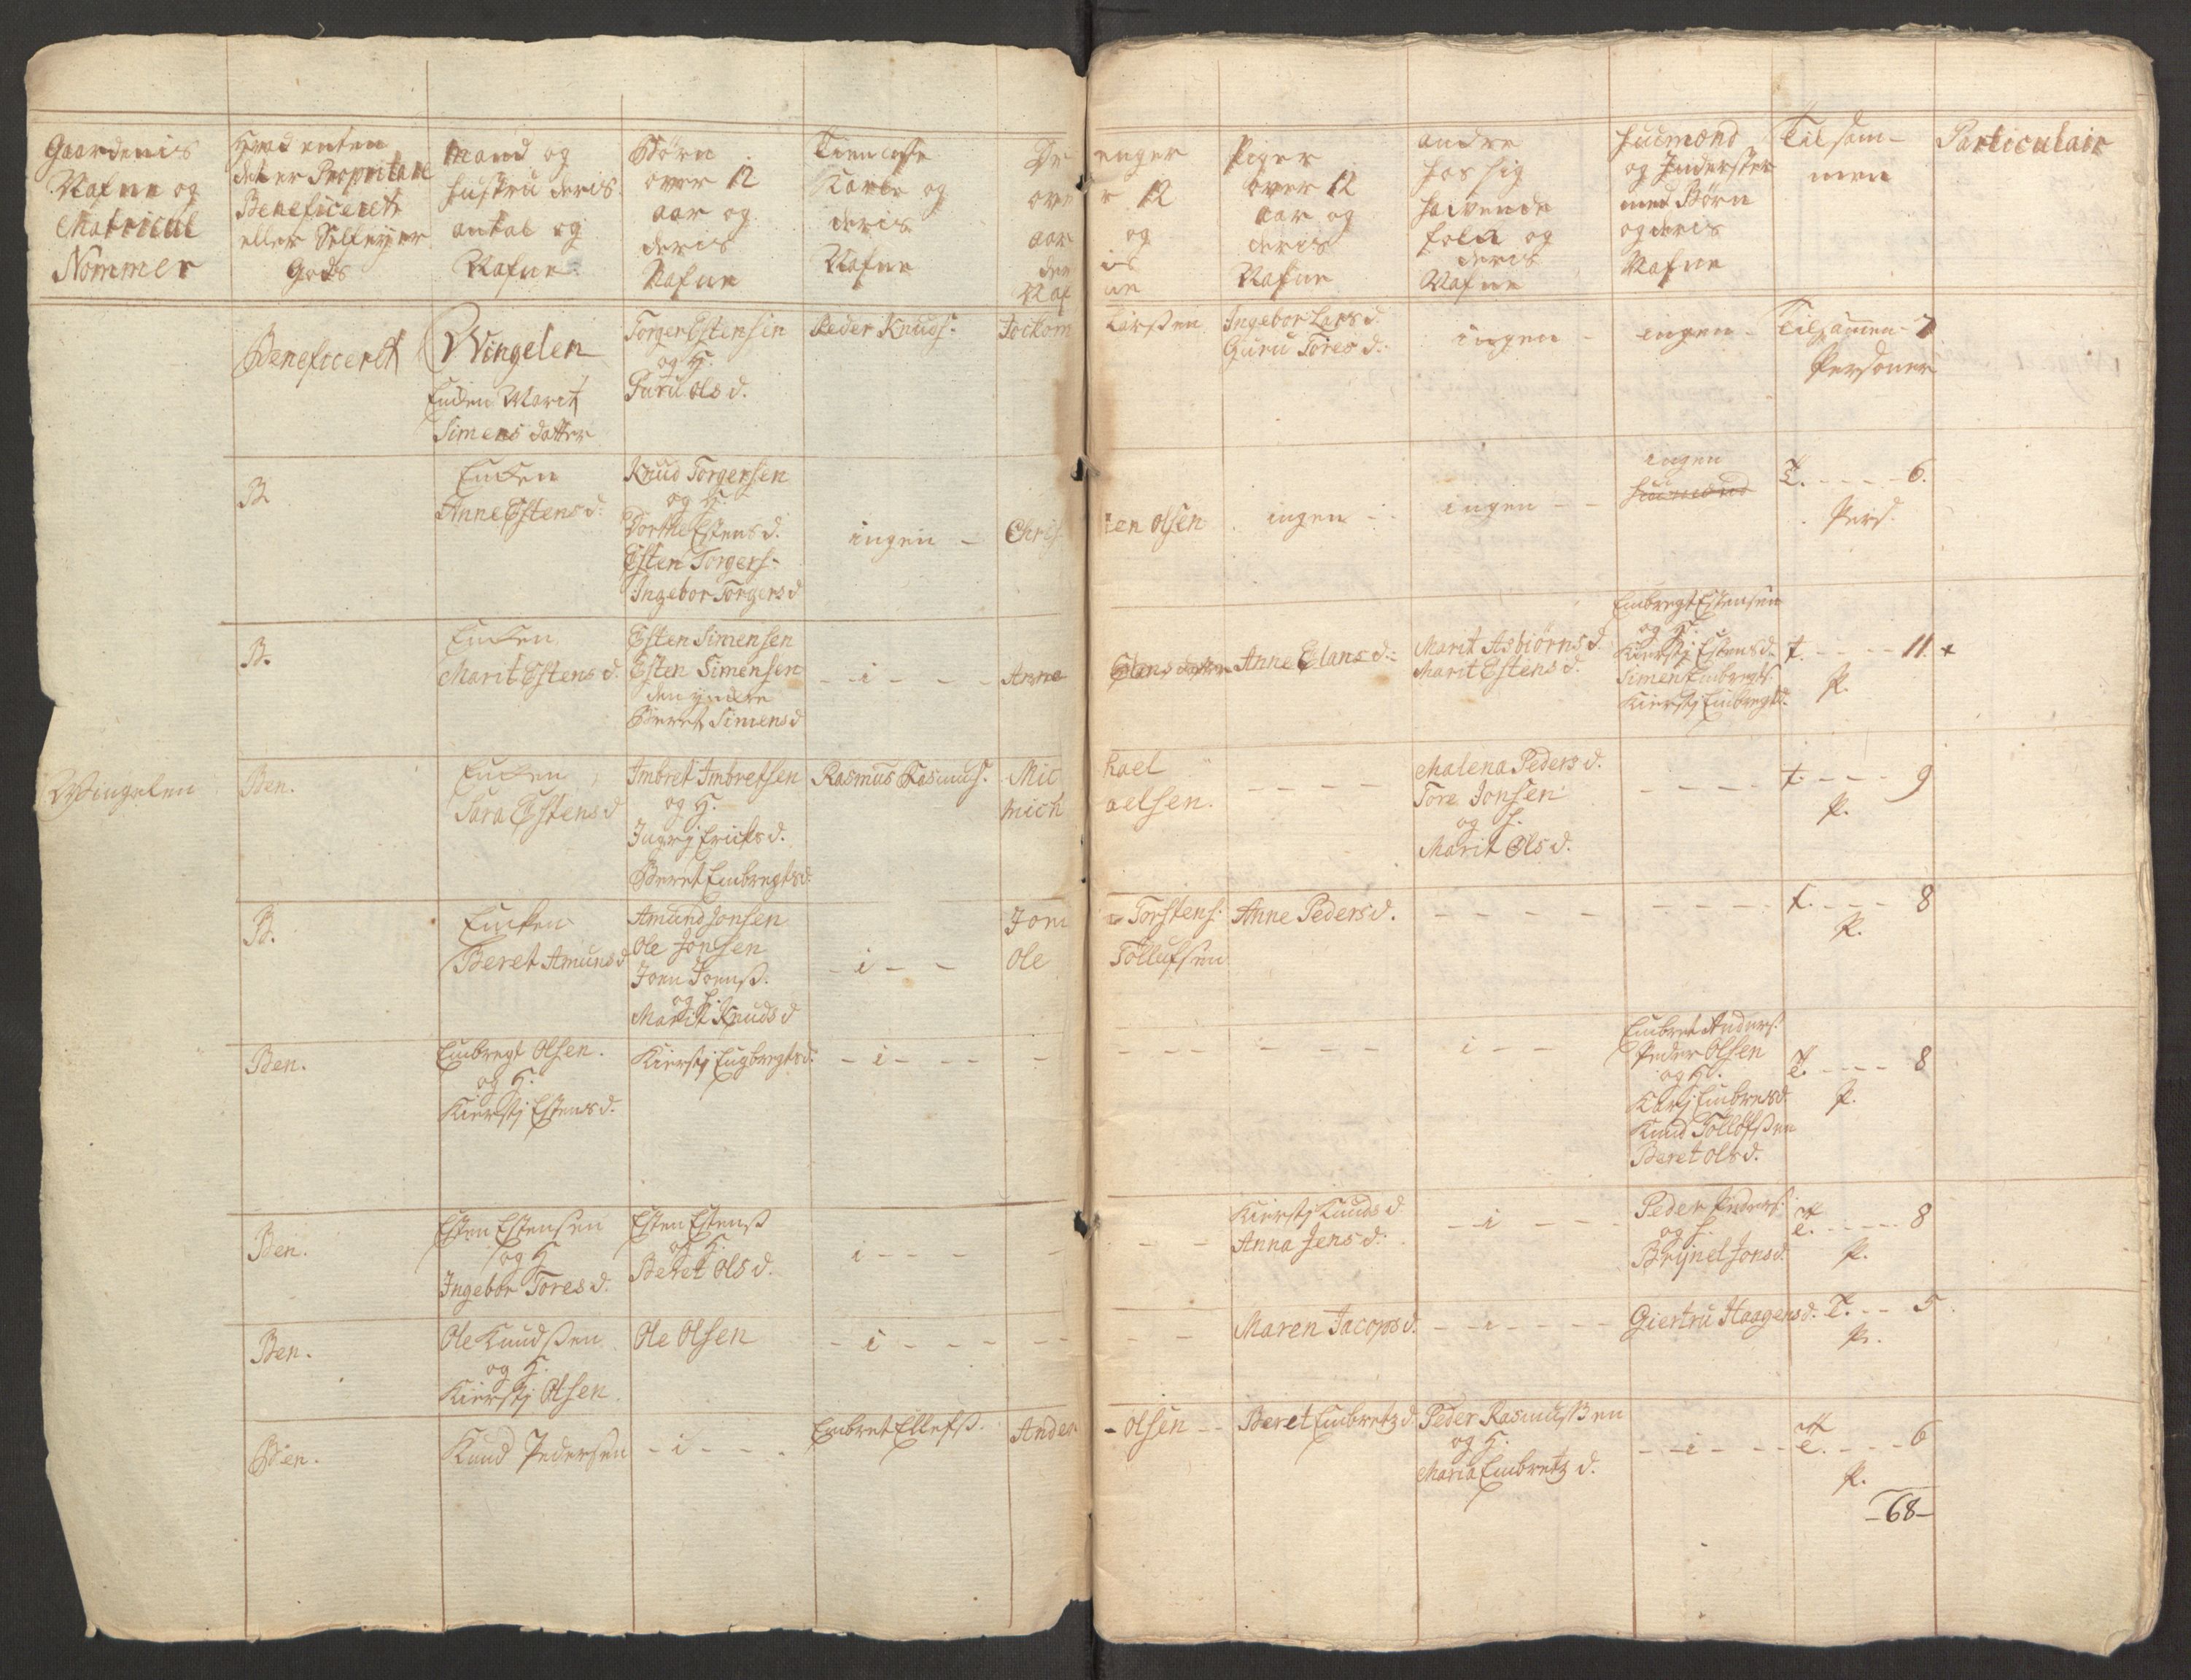 Gaardenis
Nafne og
Matricul
Nommer
Hvad enten
det er Propritair
Beneficerete
eller Selfeyer
Gods
Mand og
Hustru deris
antal og
Nafne
Børn
over 12
aar og
deris
Nafne
Tieniste
Karle og
deris
Nafne
Dr
ove
aar
der
Naf
enger
r 12
og
is
ne
Piger
over 12
aar og
deris
Nafne
andre
hos sig
hafvende
folck og
deris
Nafne
Huusmænd
og Inderster
med Børn
og deris
Nafne
Tilsam-
men
Particulair
Beneficeret
Wingelen
Encken Marit
Simens datter
Torger Estensen
og H.
Guru Ols d.
Peder Knuds.
Jockom
Larssen
Ingebor Lars d.
Guru Tores d.
ingen
ingen
Tilsammen 7
Personer
B
Encken
Anne Estens d.
Knud Torgersen
og H.
Dorthe Estens d.
Esten Torgers-
Ingebor Torgers d
ingen
Chris
ten Olsen
ingen
ingen
ingen
Huusmænd
T. - - - - 6.
Pers.
B.
Encken
Marit Estens d.
Esten Simensen
Esten Simensen
den yngre
Beret Simens d
- i - - -
Anne
Elans datter
Anne Elans d.
Marit Asbiørns d.
Marit Estens d.
Embregt Estensen
og H.
Kiersti Estens d.
Simen Embregts.
Kiersti Embregts d.
t. - - - - 11. +
P.
Wingelen
Ben.
Encken
Sara Estens d
Imbret Imbretsen
og H.
Ingrj Ericks d.
Beret Embregts d.
Rasmus Rasmuss.
Mic
mich
hael
aelsen.
- - - -
Malena Peders d.
Tore Jonsen
og H.
Marit Ols d.
- - - -
t. - - - 9
P.
B.
Encken
Beret Amuns d
Amund Jonsen
Ole Jonsen
Joen Joenss.
og H.
Marit Knuds d
- i - -
Jon
Ole
Torstens.
Tollufsen
Anne Peders d.
- - - -
- - - -
t. - - - 8
P.
Ben.
Embregt Olsen.
og H.
Kierstj Estens d.
Kierstj Engbregts d.
- i - - -
- - - -
- - - -
i - -
Embret Anders.
Peder Olsen
og H.
Karj Embrets d
Knud Tolløfssen
Beret Ols d.
T. - - - 8
P.
Ben.
Esten Estensen
og H
Ingebor Tores d.
Esten Estenss
og H.
Beret Ols d.
i - - -
- - -
Kierstj Knuds d
Anna Jens d.
- i - - -
Peder Peders.
og H.
Brynel Jons d.
T. - - - - 8
P.
Ben.
Ole Knudssen
og H.
Kierstj Olsen.
Ole Olsen
- i - - -
- - -
Maren Jacops d.
- - i - - - -
Giertru Haagens d.
T. - - 5
P.
Ben.
Knud Pedersen
- i - - -
Embret Ellefss.
Ander
- Olsen - -
Beret Embretz d.
Peder Rasmussen
og H.
Maria Embretz d.
- - i - - -
T. - - - 6
P.
- 68 -